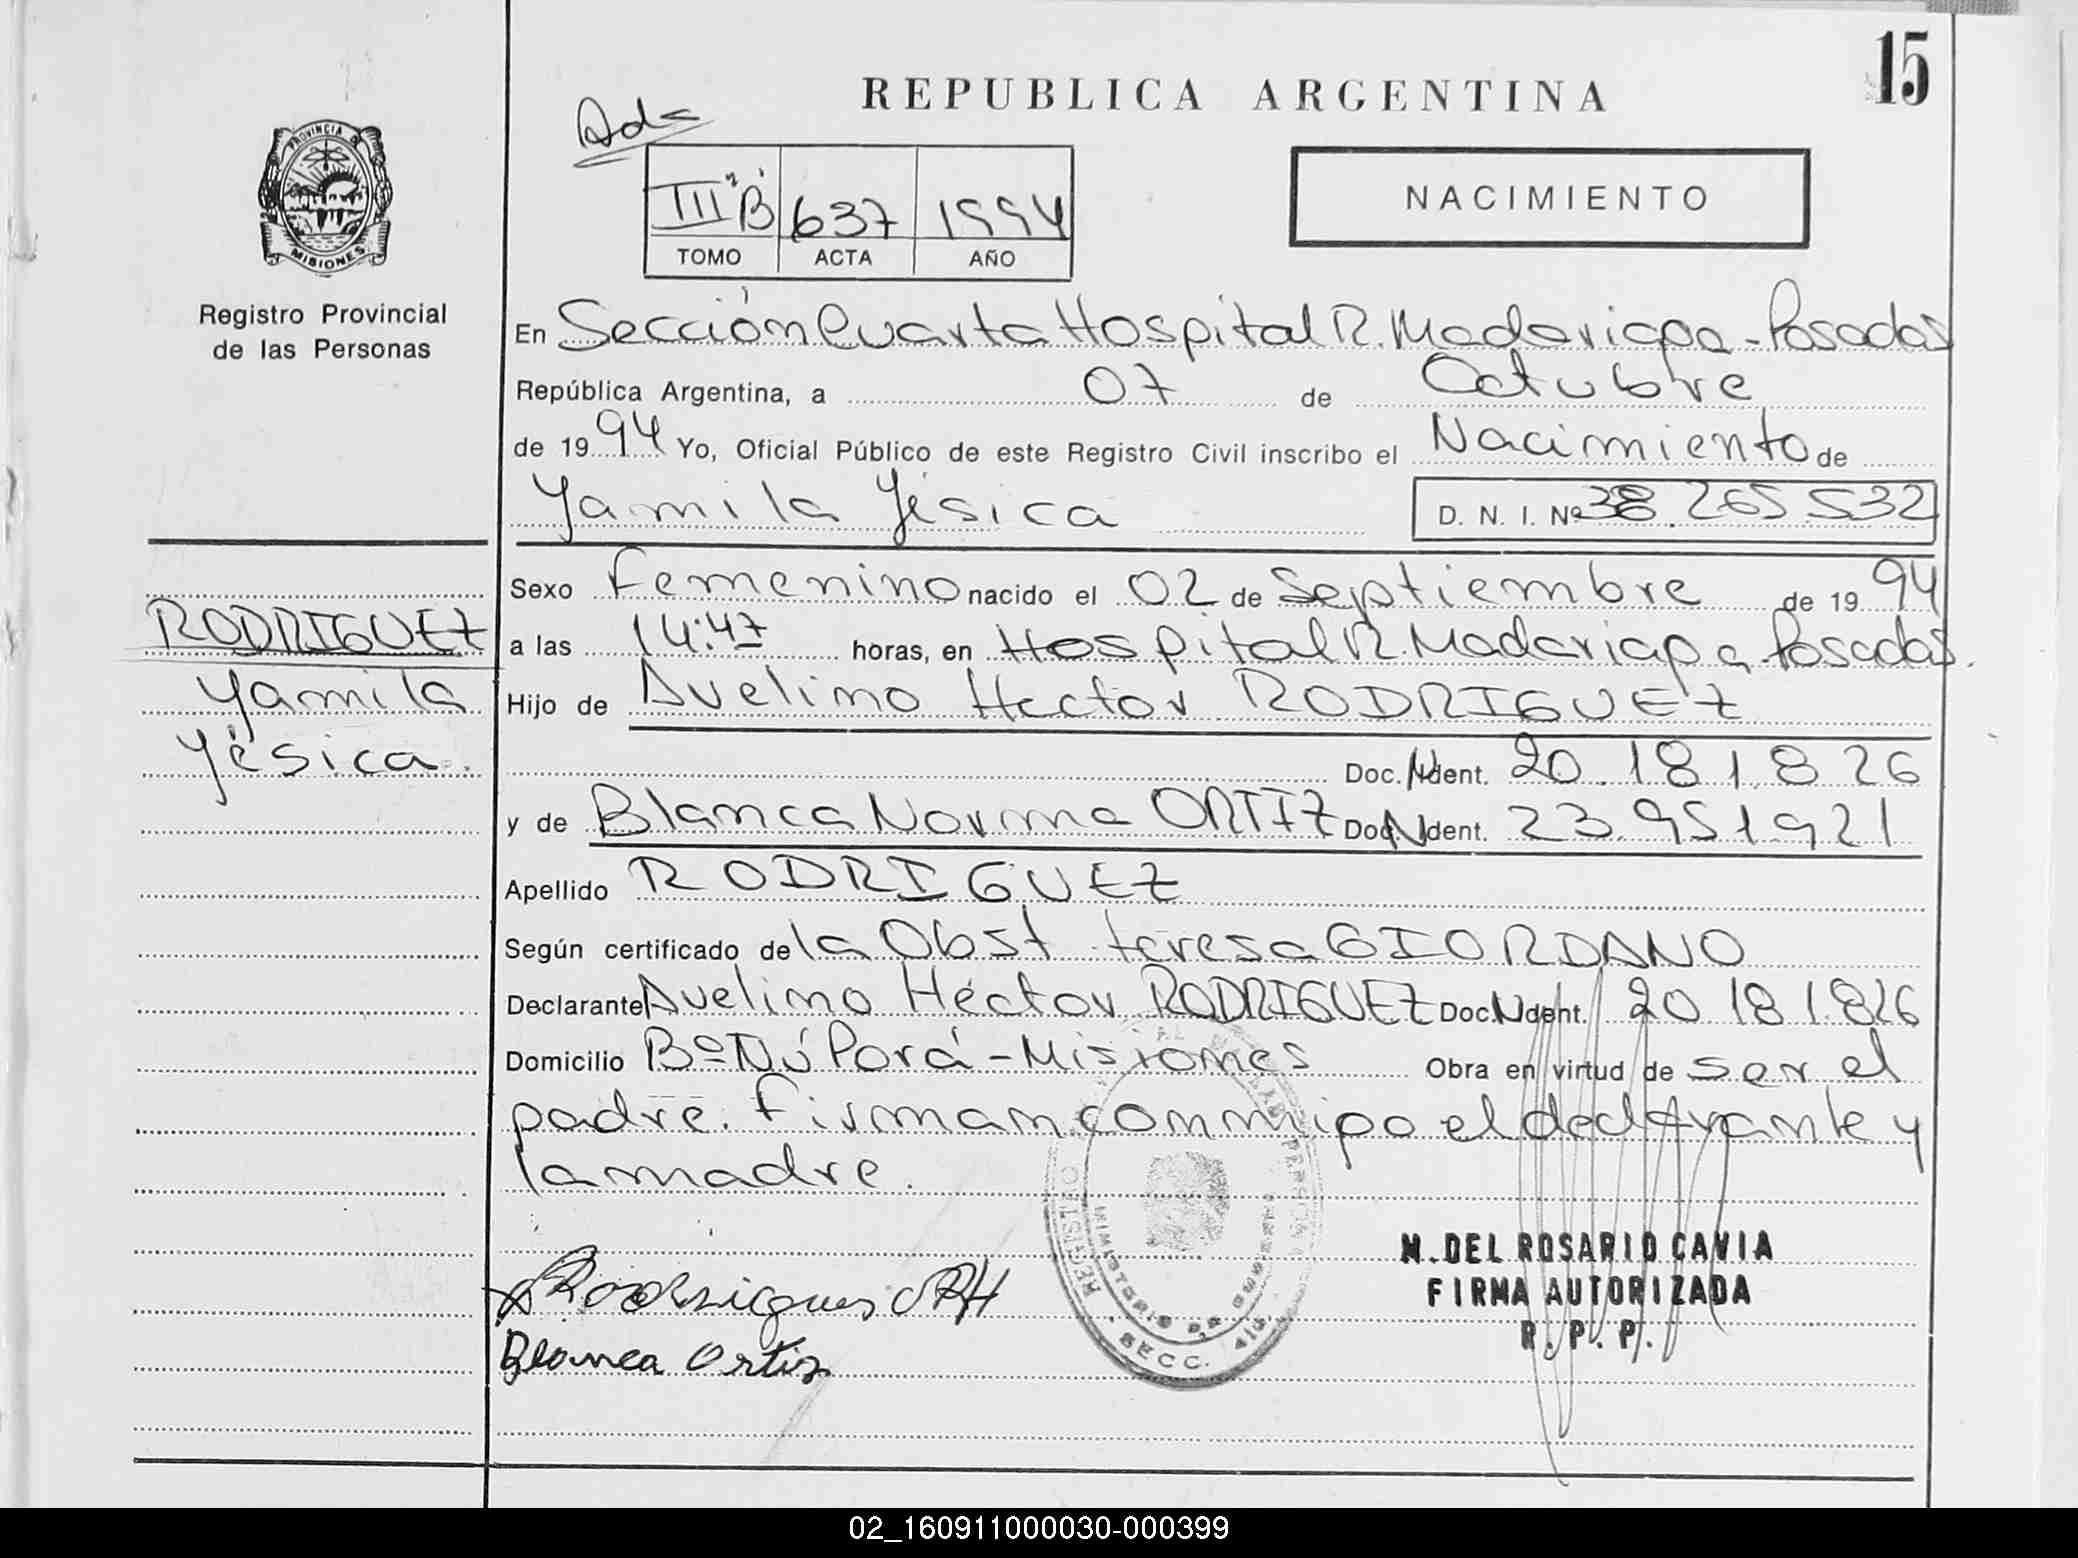 15
REPUBLICA ARGENTINA
NACIMIENTO
III "B" 637 1994
TOMO ACTA AÑO
PROVINCIA DE
MISIONES
Registro Provincial
de las Personas
En Sección Cuarta Hospital R. Madariaga - Posadas
República Argentina, a 07 de Octubre
de 1994 Yo, Oficial Público de este Registro Civil inscribo el Nacimiento de
Yamila Yésica D. N. I. Nº 38.265.532
RODRIGUEZ
Yamila
Yésica.
Sexo Femenino nacido el 02 de Septiembre de 1994
a las 14:47 horas, en Hospital R. Madariaga Posadas.
Hijo de Avelino Hector RODRIGUEZ
Doc. N Ident. 20.181.826
y de Blanca Norma ORTIZ Doc. N Ident. 23.951.921
Apellido RODRIGUEZ
Según certificado de la Obst. teresa GIORDANO
Declarante Avelino Héctor RODRIGUEZ Doc. N Ident. 20.181.826
Domicilio Bº Ñú Porá - Misiones Obra en virtud de ser el
padre. Firman conmigo el declarante y
la madre.
REGISTRO
MINISTERIO DE GOBIERNO
SECC. 4ta.
M. DEL ROSARIO CAVIA
FIRMA AUTORIZADA
R. P. P.
Blanca Ortiz
02_160911000030-000399